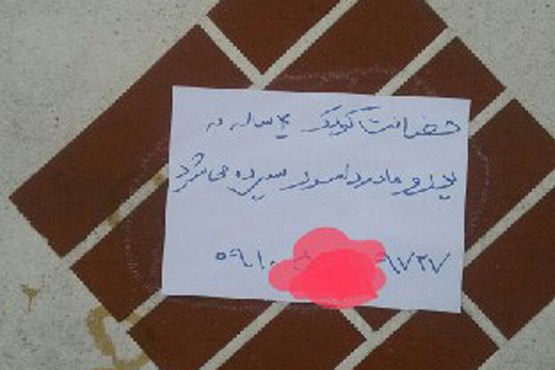 حضانت کودک ۴ ساله به
پدر و مادر دلسوز سپرده می شود
۰۹۱۰ ۹۷۲۷